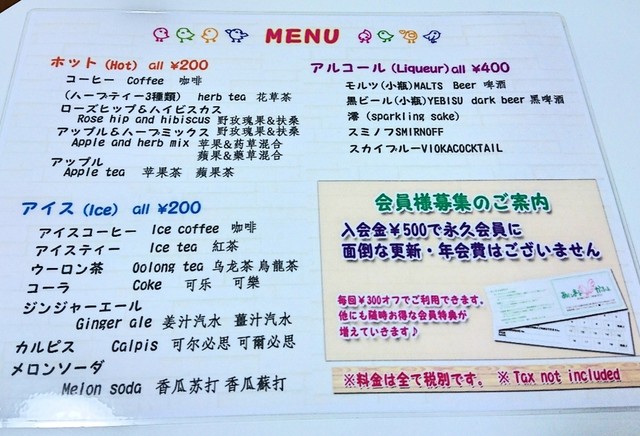 MENU
ホット (Hot) all ¥200
コーヒー Coffee 咖啡
(ハーブティー3種類) herb tea 花草茶
ローズヒップ&ハイビスカス
Rose hip and hibiscus 野玫瑰果&扶桑
アップル&ハーブミックス 野玫瑰果&扶桑
Apple and herb mix 苹果&药草混合
蘋果&藥草混合
アップル
Apple tea 苹果茶 蘋果茶
アイス (Ice) all ¥200
アイスコーヒー Ice coffee 咖啡
アイスティー Ice tea 紅茶
ウーロン茶 Oolong tea 乌龙茶 烏龍茶
コーラ Coke 可乐 可樂
ジンジャーエール
Ginger ale 姜汁汽水 薑汁汽水
カルピス Calpis 可尔必思 可爾必思
メロンソーダ
Melon soda 香瓜苏打 香瓜蘇打
アルコール (Liqueur) all ¥400
モルツ(小瓶)MALTS Beer 啤酒
黒ビール(小瓶)YEBISU dark beer 黑啤酒
澪 (sparkling sake)
スミノフSMIRNOFF
スカイブルーVIOKACOCKTAIL
会員様募集のご案内
入会金¥500で永久会員に
面倒な更新・年会費はございません
毎回¥300オフでご利用できます。
他にも随時お得な会員特典が
増えていきます♪
※料金は全て税別です。 ※ Tax not included